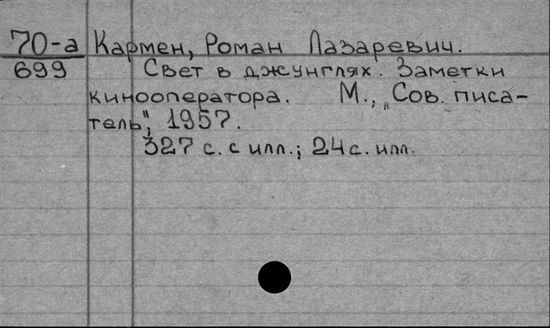 70-а Кармен, Роман Лазаревич.
699 Свет в джунглях. Заметки
кинооператора. М., „Сов. писа-
тель“, 1957.
327 с. с илл.; 24 с. илл.